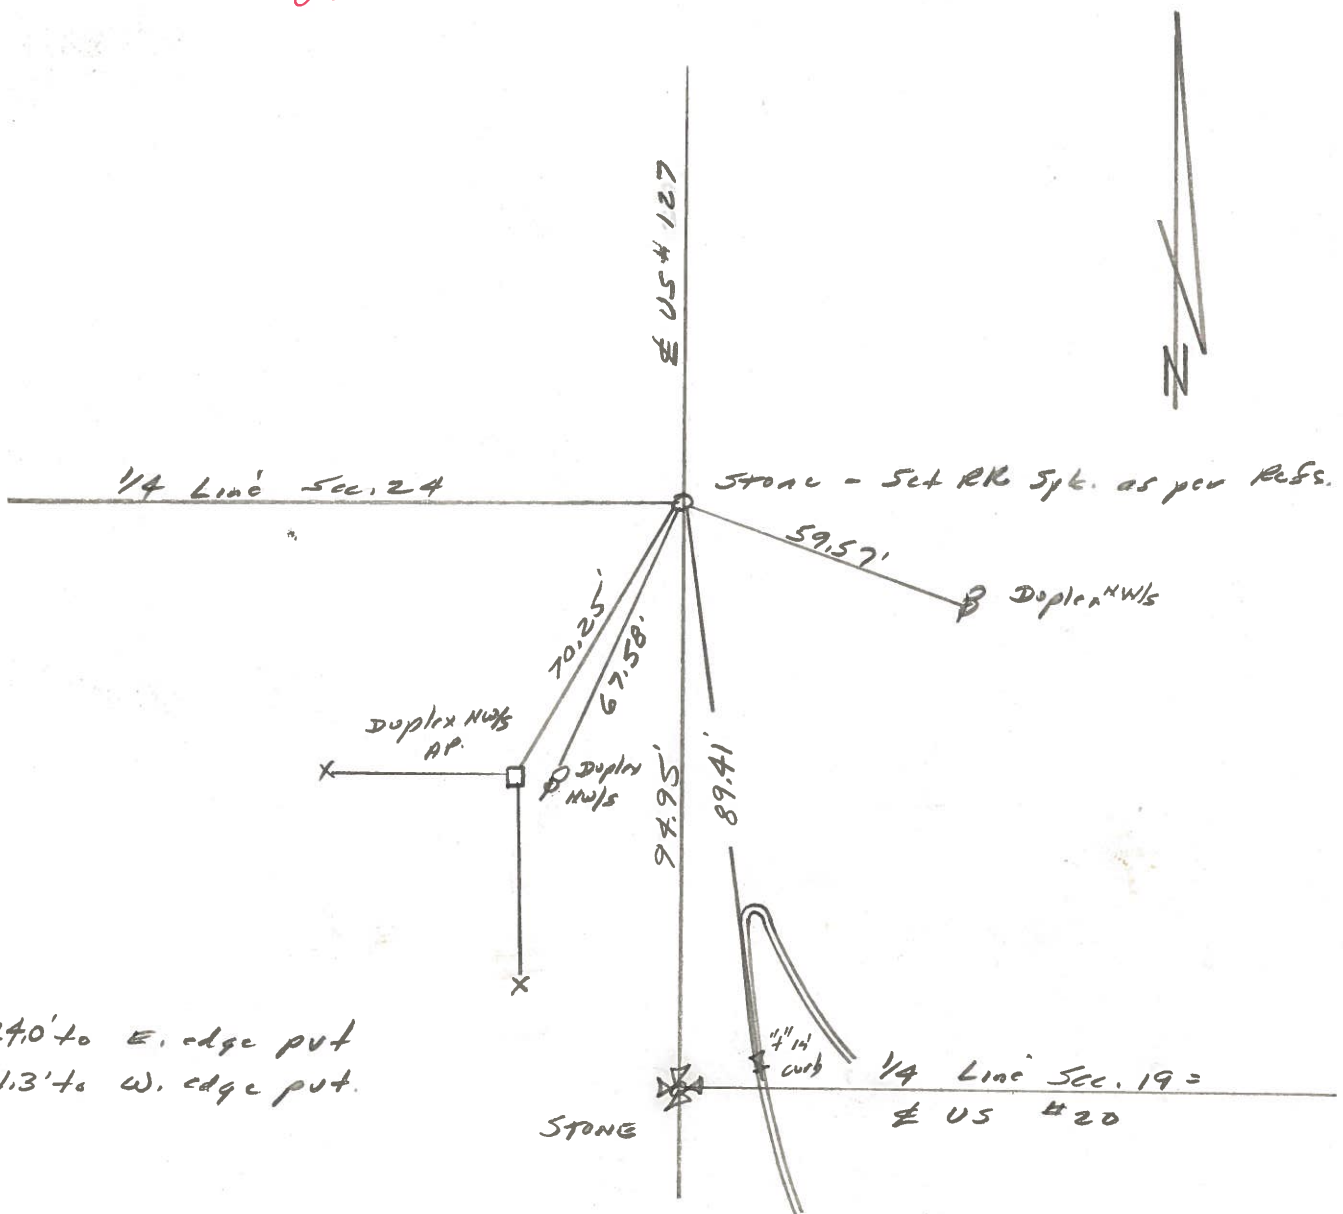 ℄ US # 127
N
1/4 Line Sec. 24
Stone - Set RR Spk. as per Refs.
59.57'
Duplex NW/S
70.25'
67.58'
Duplex NW/S
AP.
Duplex
NW/S
94.95'
89.41'
4.0' to E. edge pvt
1.3' to W. edge pvt.
"+" in
curb
1/4 Line Sec. 19 =
℄ US #20
STONE